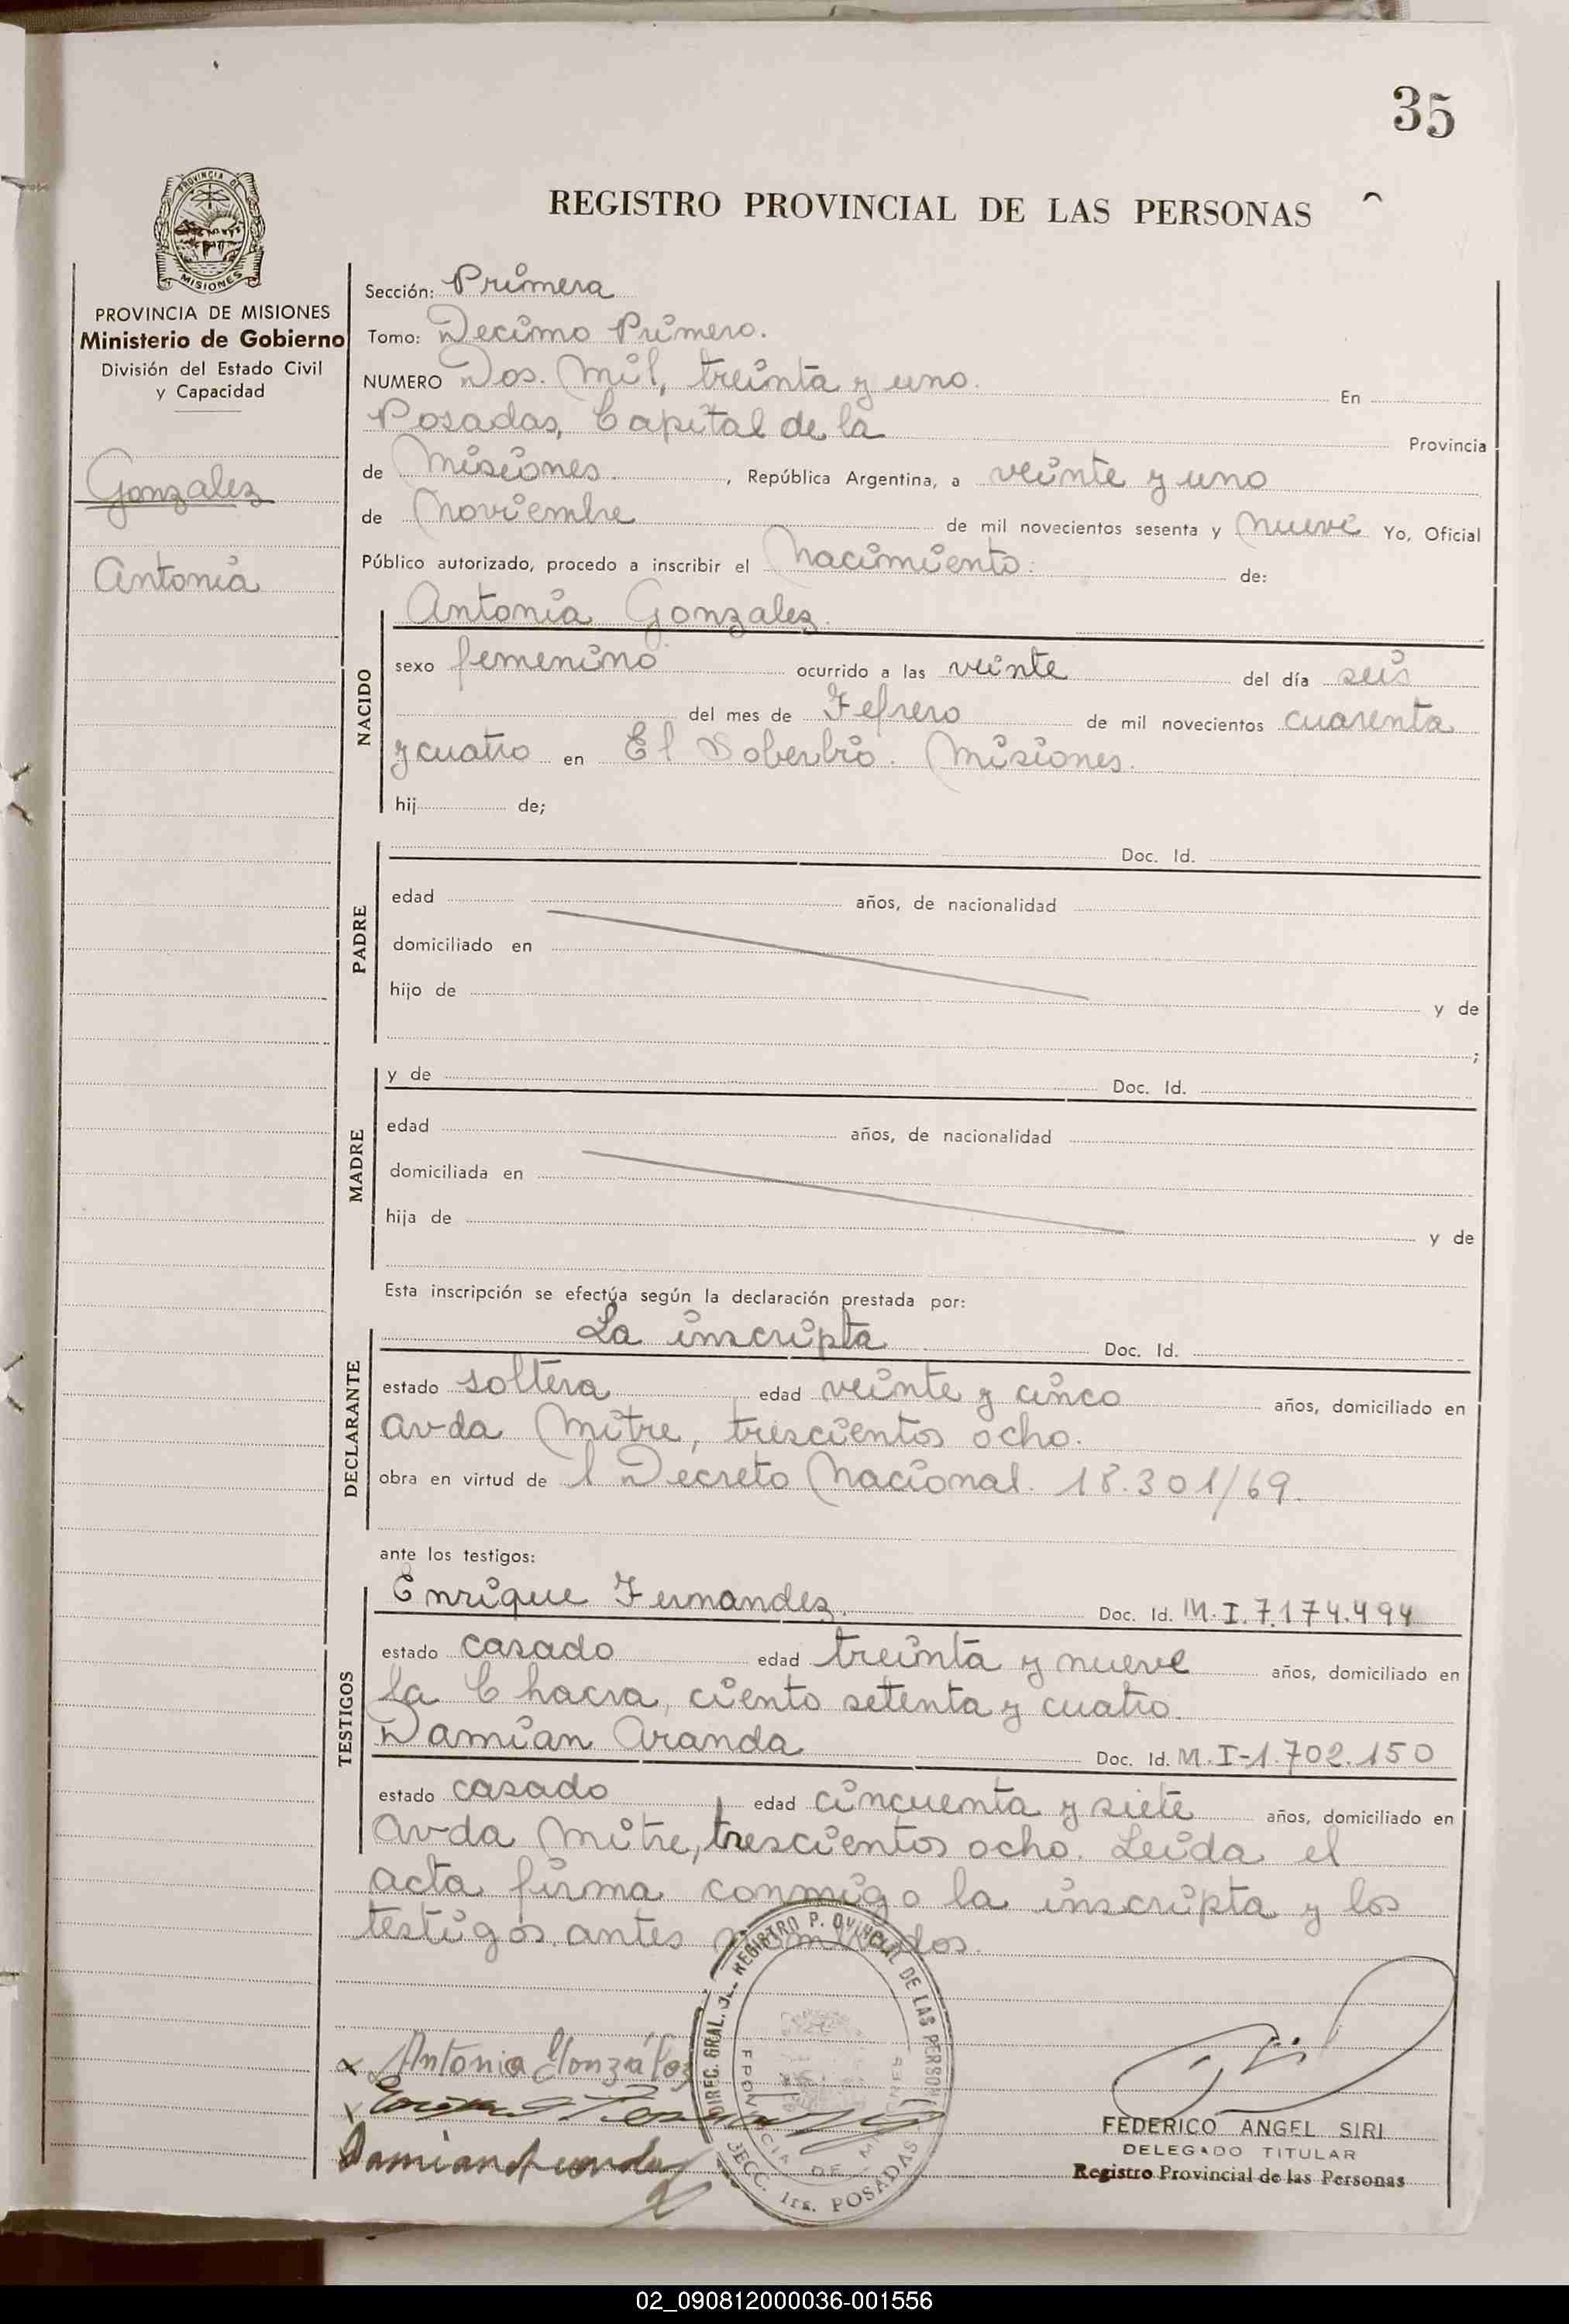 35
REGISTRO PROVINCIAL DE LAS PERSONAS
PROVINCIA DE
MISIONES
PROVINCIA DE MISIONES
Ministerio de Gobierno
División del Estado Civil
y Capacidad
Gonzalez
Antonia
Sección: Primera
Tomo: Decimo Primero.
NUMERO Dos. Mil, treinta y uno. En
Posadas, Capital de la Provincia
de Misiones. , República Argentina, a veinte y uno
de Noviembre de mil novecientos sesenta y nueve Yo, Oficial
Público autorizado, procedo a inscribir el Nacimiento: de:
NACIDO
Antonia Gonzalez.
sexo femenino ocurrido a las veinte del día seis
del mes de Febrero de mil novecientos cuarenta
y cuatro en El Soberbio. Misiones.
hij de;
PADRE
Doc. Id.
edad años, de nacionalidad
domiciliado en
hijo de y de
;
MADRE
y de Doc. Id.
edad años, de nacionalidad
domiciliada en
hija de y de
Esta inscripción se efectúa según la declaración prestada por:
DECLARANTE
La inscripta Doc. Id.
estado soltera edad veinte y cinco años, domiciliado en
avda Mitre, trescientos ocho.
obra en virtud de l Decreto Nacional. 18.301/69.
ante los testigos:
TESTIGOS
Enrique Fernandez. Doc. Id. M.I.7.174.494
estado casado edad treinta y nueve años, domiciliado en
la Chacra, ciento setenta y cuatro.
Damian Aranda Doc. Id. M.I-1.702.150
estado casado edad cincuenta y siete años, domiciliado en
avda Mitre, trescientos ocho. Leida el
acta firma conmigo la inscripta y los
testigos antes nombrados.
DIREC. GRAL. DEL REGISTRO PROVINCIAL DE LAS PERSONAS
PROVINCIA DE MISIONES
SECC. 1ra. POSADAS
x Antonia González
Damian Aranda
FEDERICO ANGEL SIRI
DELEGADO TITULAR
Registro Provincial de las Personas
02_090812000036-001556